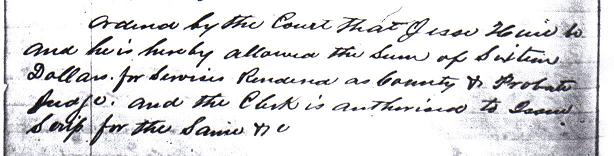 Ordered by the Court that Jesse be
and he is hereby allowed the Sum of Sixteen
Dollars. for Services Rendered as County & Probate
Judge. and the Clerk is authorised to Issue
Scrip for the Same & c